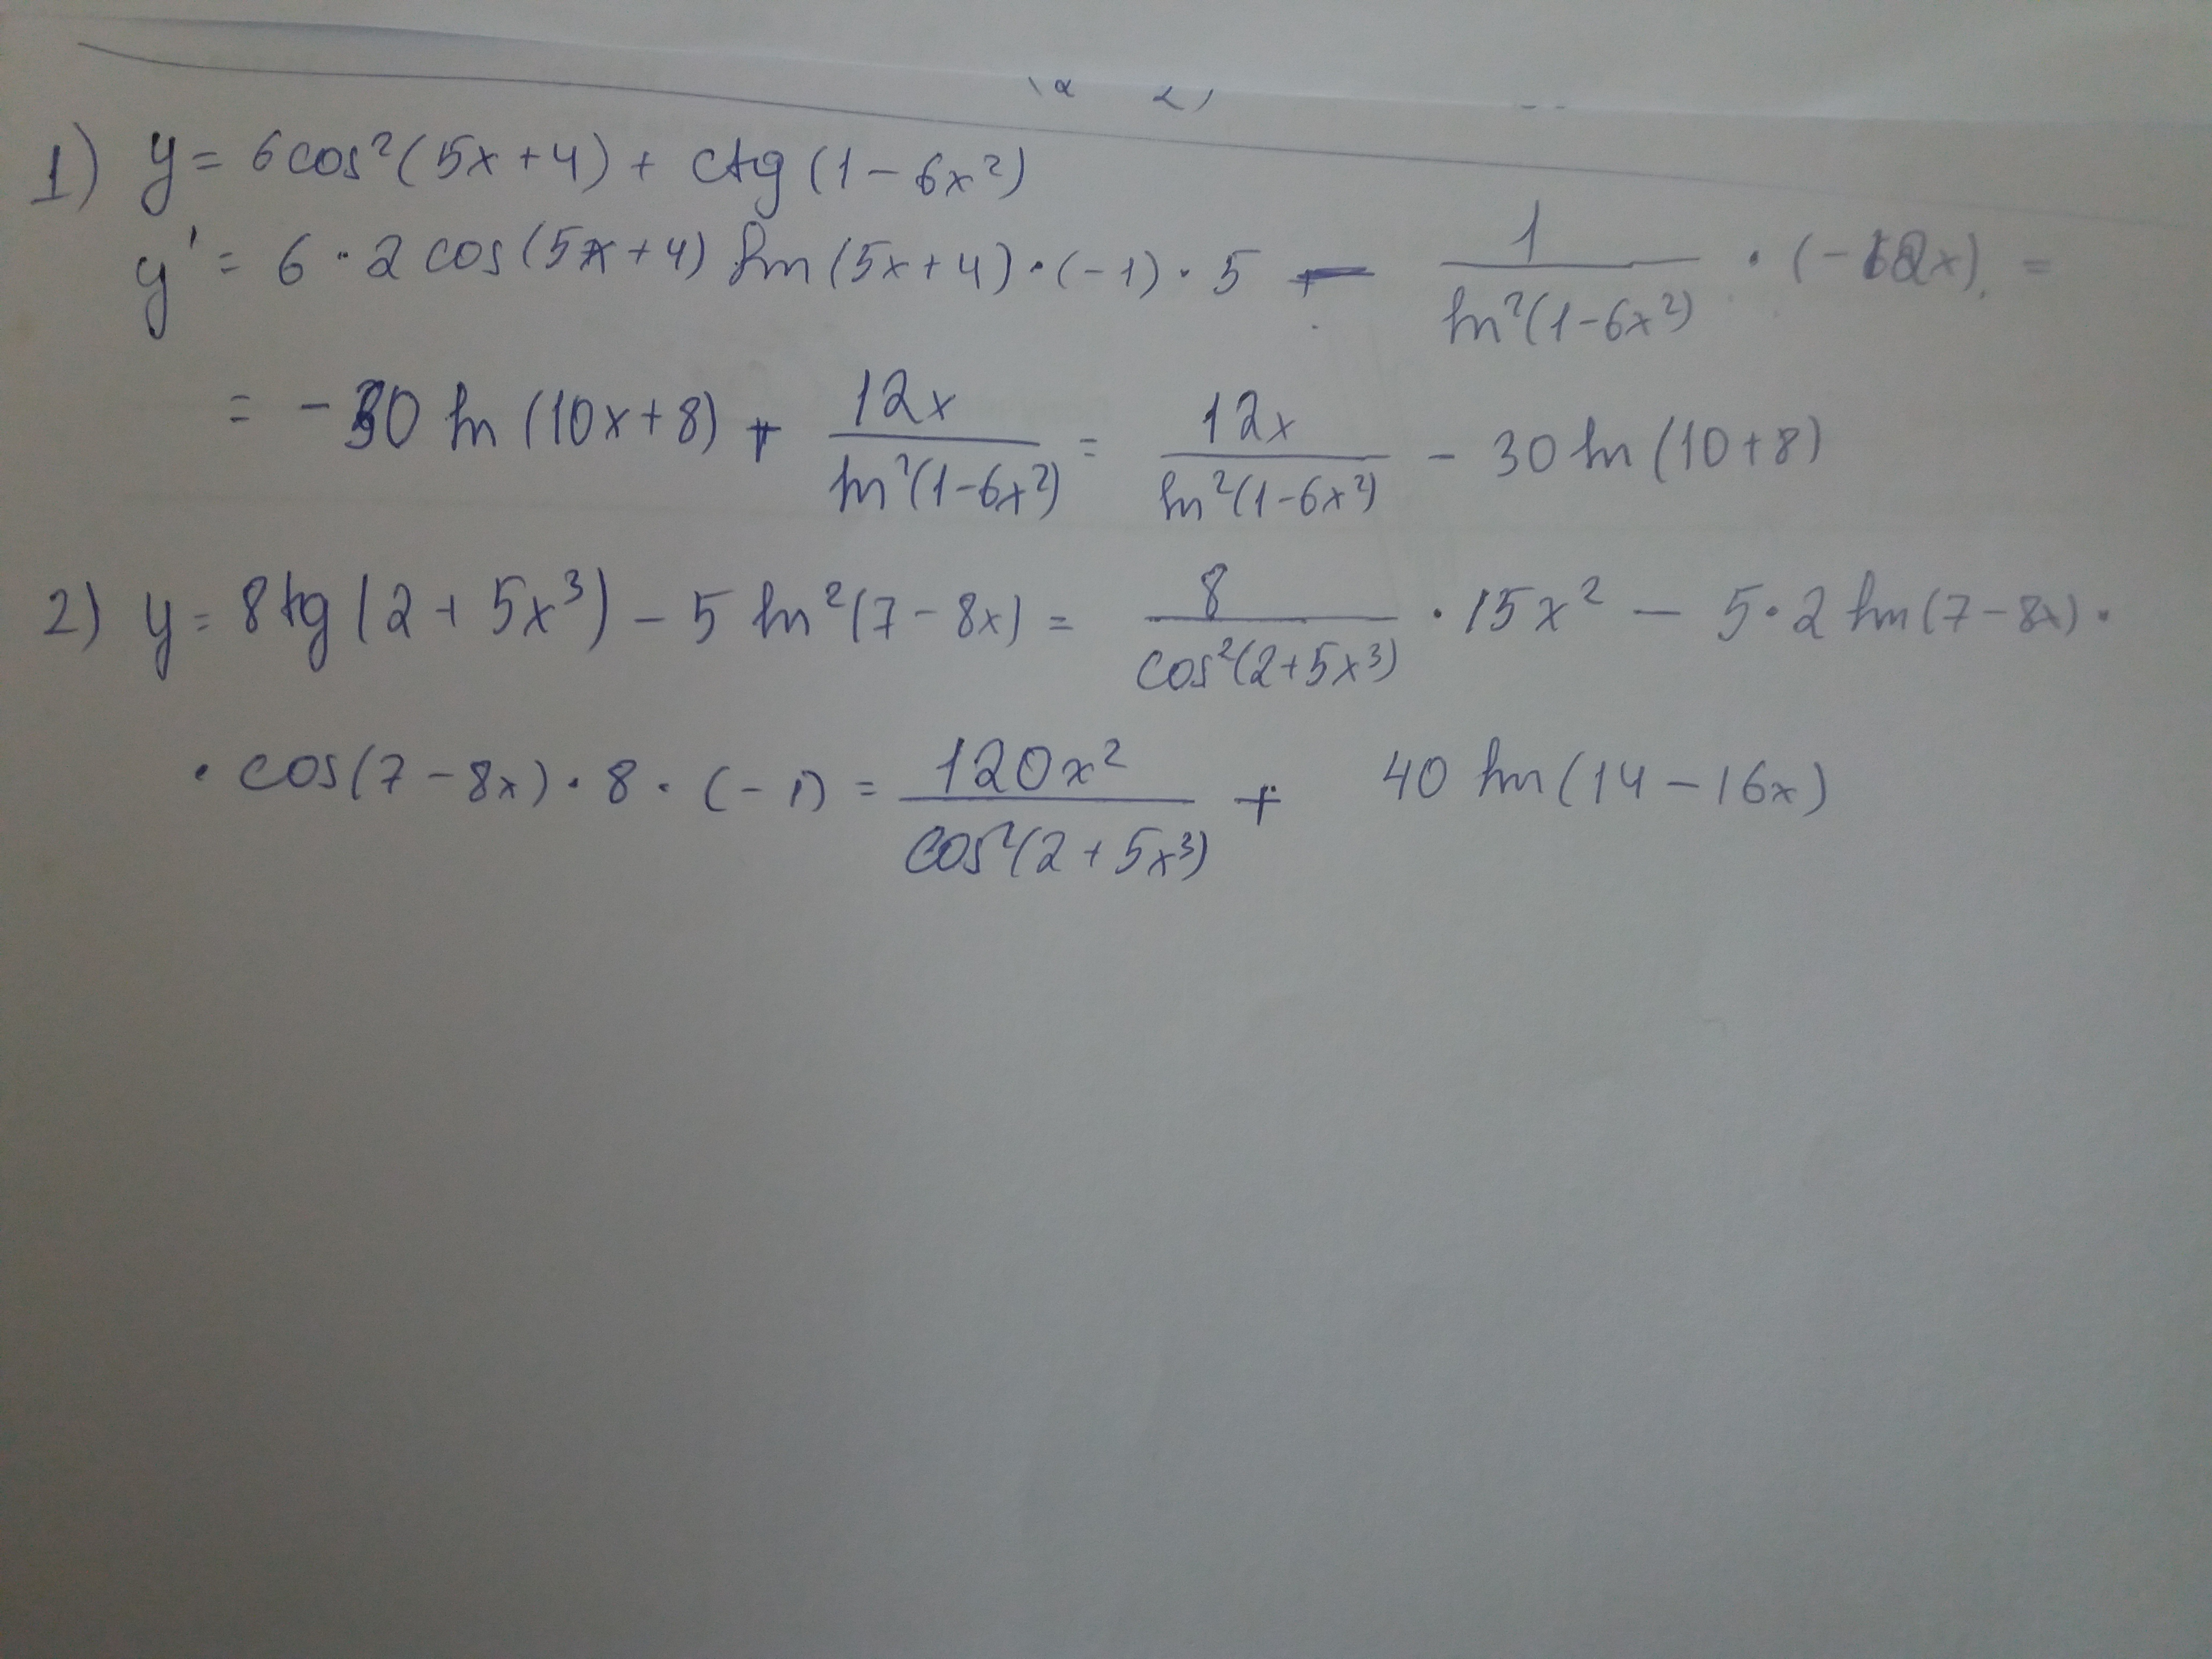 1) y = 6cos²(5x+4) + ctg(1-6x²)
y' = 6·2cos(5x+4) sin(5x+4)·(-1)·5 - 1/sin²(1-6x²) · (-12x) =
= -30 sin(10x+8) + 12x/sin²(1-6x²) = 12x/sin²(1-6x²) - 30 sin(10+8)
2) y = 8tg(2+5x³) - 5 sin²(7-8x) = 8/cos²(2+5x³) · 15x² - 5·2 sin(7-8x)·
· cos(7-8x)·8·(-1) = 120x²/cos²(2+5x³) + 40 sin(14-16x)